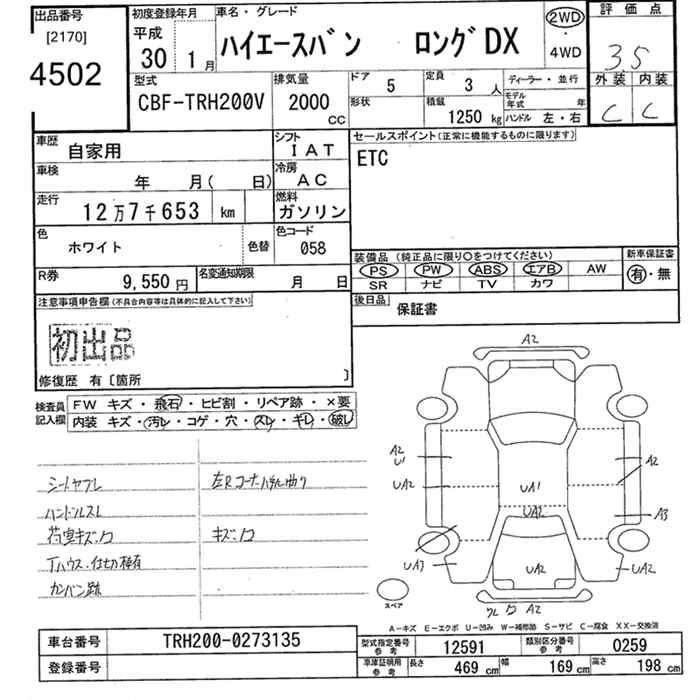 出品番号
[2170]
4502
初度登録年月
平成
30年 1月
車名・グレード
ハイエースバン ロングDX
2WD
・
4WD
評価点
3.5
外装 内装
C C
型式
CBF-TRH200V
排気量
2000
CC
ドア 5
形状
定員 3 人
積載 1250 kg
ディーラー・並行
モデル年式 年
ハンドル 左・右
車歴
自家用
シフト
IAT
車検
年 月( 日)
冷房
AC
走行
12万7千653 km
燃料
ガソリン
色
ホワイト
色替
色コード
058
R券
9,550円
名変通知期限
月 日
セールスポイント(正常に機能するものに限ります)
ETC
装備品 (純正品に限り○をつけてください)
PS PW ABS エアB AW
SR ナビ TV カワ
新車保証書
有・無
後日品
保証書
注意事項申告欄(不具合内容等は具体的に記入して下さい)
初出品
修復歴 有〔箇所 〕
検査員記入欄
FW キズ・飛石・ヒビ割・リペア跡・×要
内装 キズ・汚レ・コゲ・穴・スレ・キレ・破レ
シートヤブレ
ハンドルスレ
荷室キズ・ワ
Tハウス・仕切板有
カンバン跡
左Rコーナーパネル曲り
キズ・ワ
A2
A2
U1
UA2
UA3
UA1
UA2
UA2
A2
A3
UA2
ワ A2
スペア
A-キズ E-エクボ U-凹み W-補修跡 S-サビ C-腐食 XX-交換済
車台番号
TRH200-0273135
登録番号
型式指定番号
参考
12591
類別区分番号
参考
0259
車庫証明用
参考
長さ 469 cm 幅 169 cm 高さ 198 cm